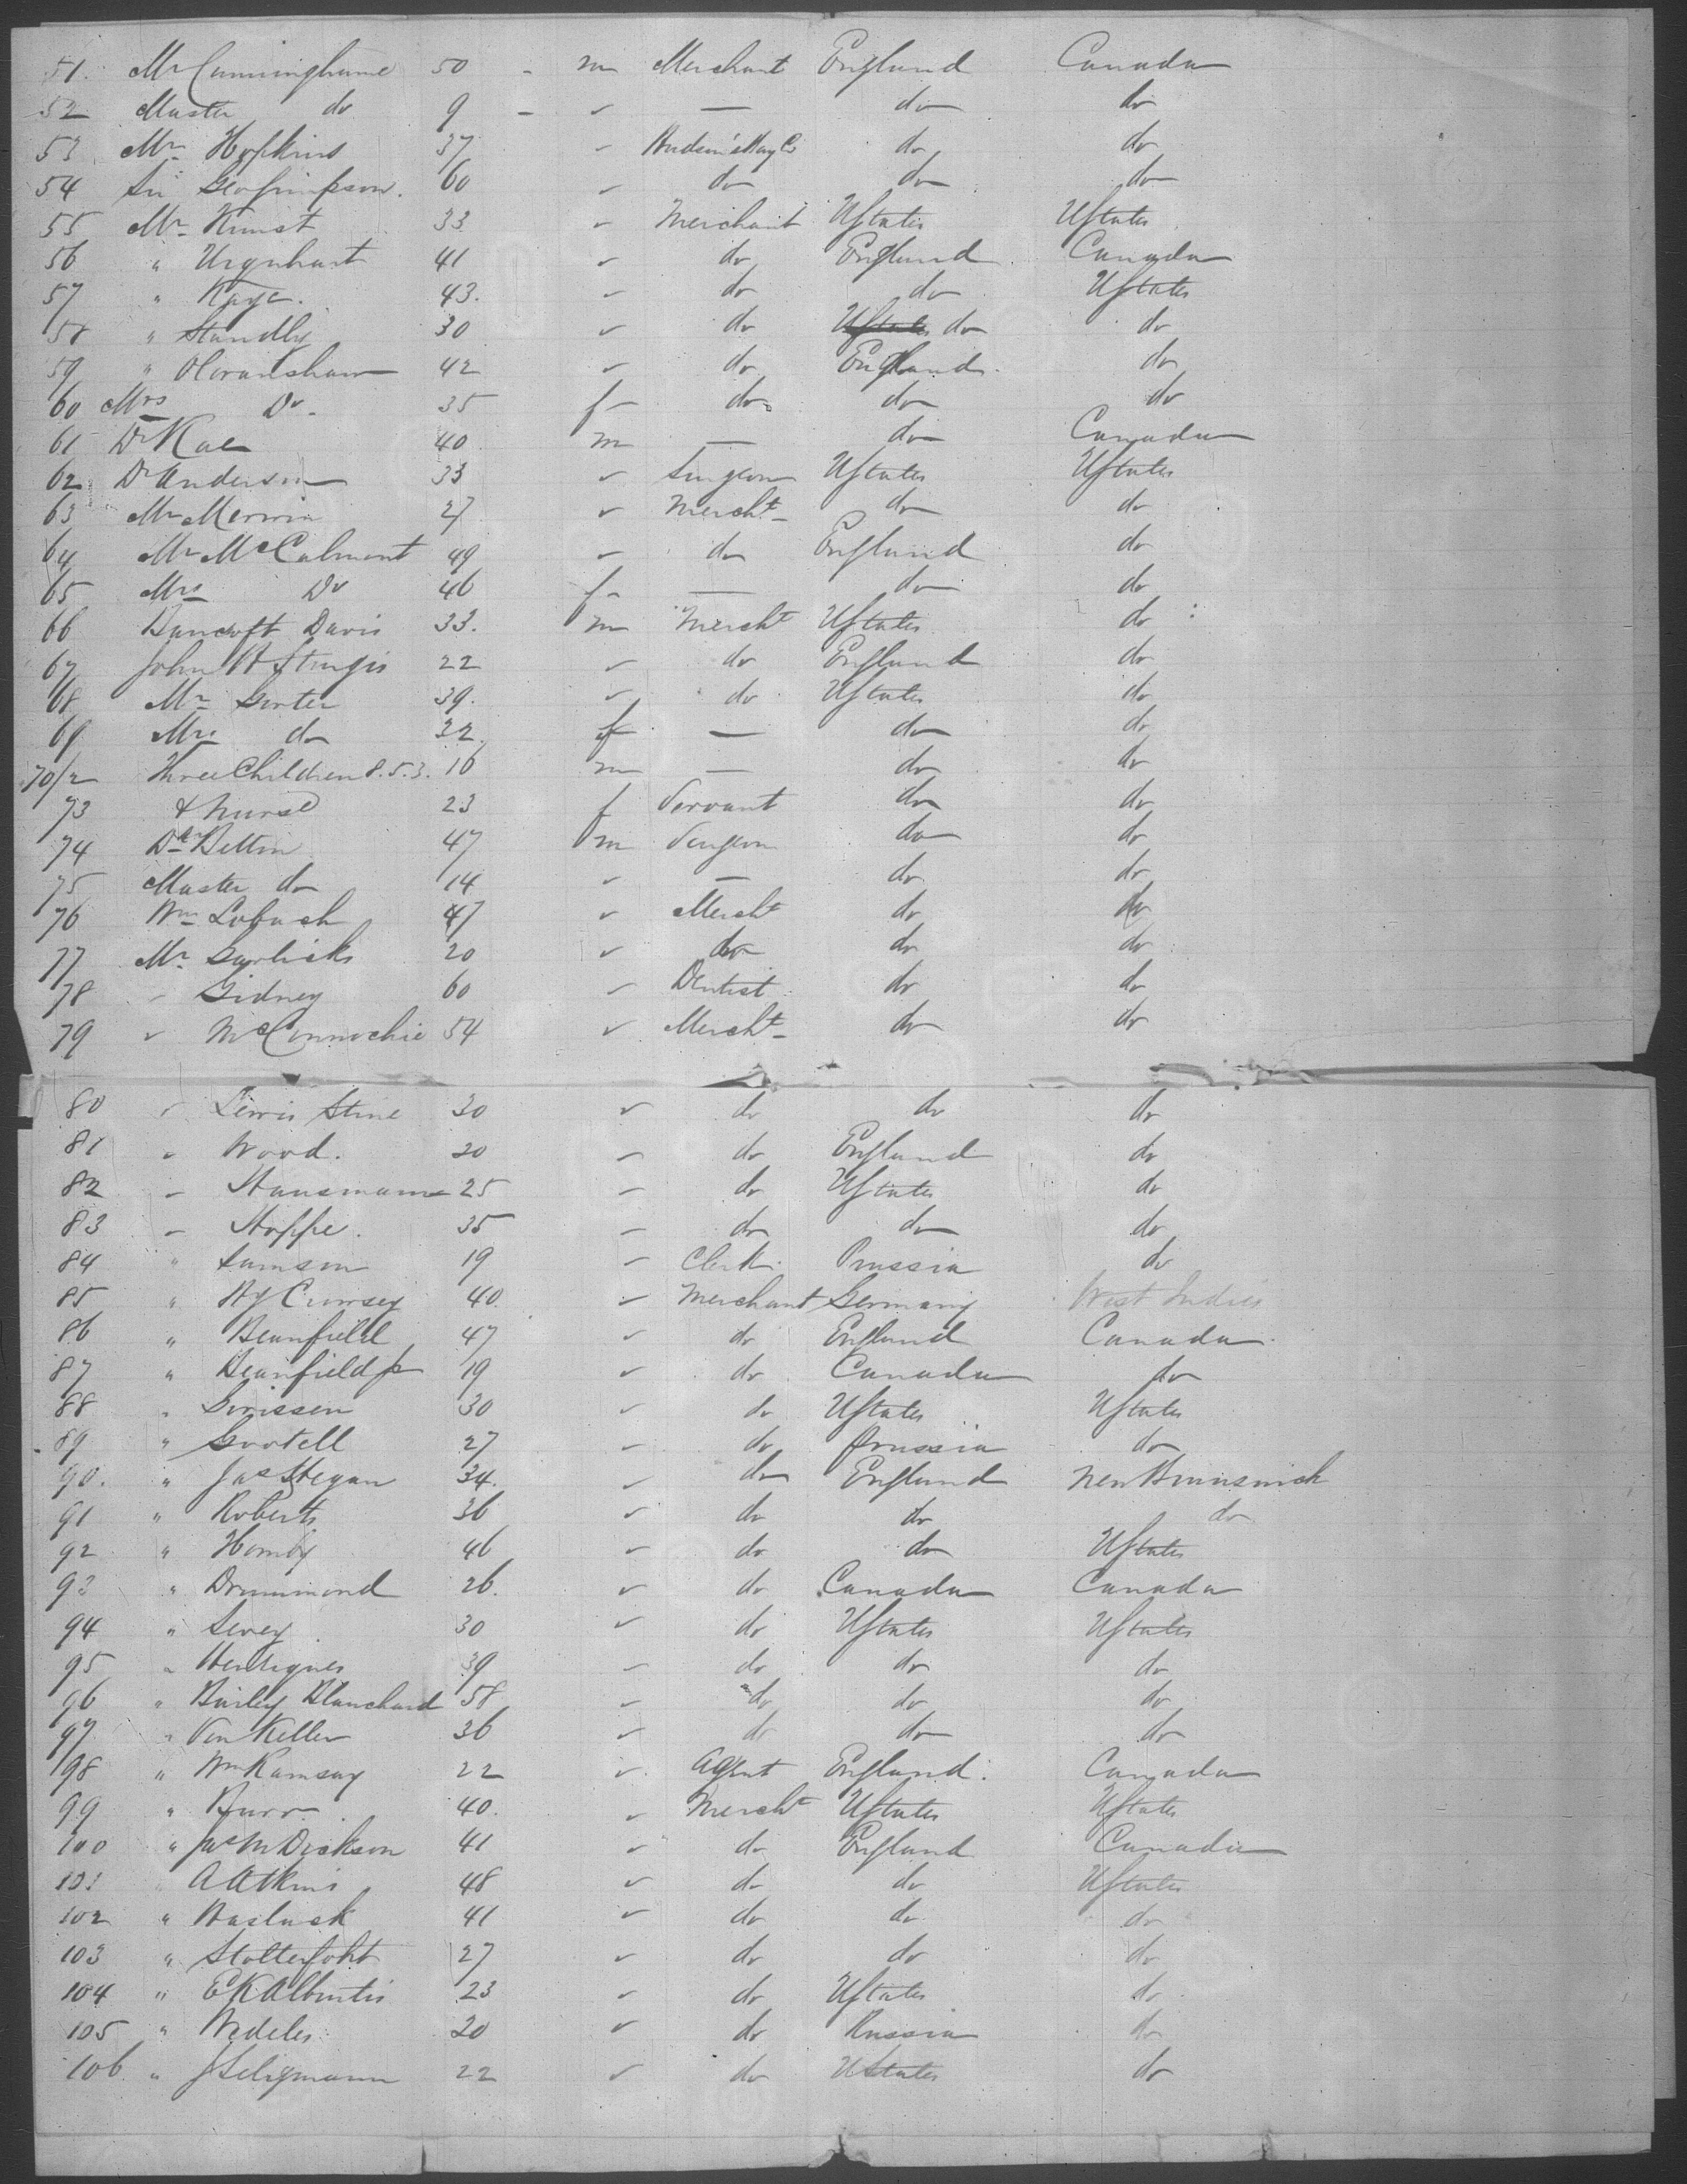 51. Mr Cunninghame 50 - m Merchant England Canada
52 Master do 9 - " — do do
53 Mr Hopkins 37 " Hudson's Bay Co do do
54 Sir Geo Simpson. 60 " do do do
55 Mr 33 " Merchant UStates UStates
56 " Urquhart 41 " do England Canada
57 " Kaye. 43. " do do UStates
58 " Standly 30 " do do do
59 " 42 " do England do
60 Mrs Do. 35 f do do do
61 Dr Rae 40 m — do Canada
62 Dr Anderson 33 " Surgeon UStates UStates
63 Mr Merwin 27 " Mercht do do
64 Mr McCalmont 49 " do England do
65 Mrs Do 46 f — do do
66 Bancroft Davis 33. m Mercht UStates do
67 John H Sturgis 22 " do England do
68 Mr 39. " do UStates do
69 Mrs do 32 f — do do
70/2 Three Children 8.5.3. 16 m — do do
73 & nurse 23 f Servant do do
74 Dr Betton 47 m Surgeon do do
75 Master do 14 " — do do
76 Wm Lobach 47 " Mercht do do
77 Mr Garlicks 20 " do do do
78 " Gidney 60 " Dentist do do
79 " McConnochie 54 " Mercht do do
80 " Lewis Stine 30 " do do do
81 " Wood. 20 " do England do
82 " Hausmann 25 " do UStates do
83 " Hoppe. 35 " do do do
84 " Samson 19 " Clerk Prussia do
85 " 40. " Merchant Germany West Indies
86 " Beanfield 47 " do England Canada
87 " Beanfield jr 19 " do Canada do
88 " Gorissen 30 " do UStates UStates
89 " 27 " do Prussia do
90. " Jas Hegan 34. " do England New Brunswick
91 " Roberts 36 " do do do
92 " 46 " do do UStates
93 " Drummond 26. " do Canada Canada
94 " 30 " do UStates UStates
95 " Henriques 39 " do do do
96 " Blanchard 58 " do do do
97 " Von Keller 36 " do do do
98 " Wm Ramsay 22 " Agent England. Canada
99 " Burr 40. " Mercht UStates UStates
100 " Jas M Dickson 41 " do England Canada
101 " A Atkins 48 " do do UStates
102 " Hasluck 41 " do do do
103 " Stolterfoht 27 " do do do
104 " E K Alburtis 23 " do UStates do
105 " Wedeles 20 " do Russia do
106 " J Seligmann 22 " do UStates do